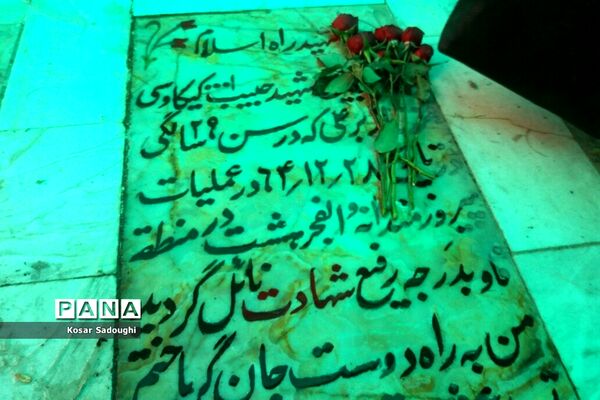 شهید راه اسلام
شهید حبیب الله کیکاوسی
علی که در سن ۲۹ سالگی
۶۴٫۱۲٫۲۸ در عملیات
پیروزمندانه والفجر هشت در منطقه
فاو بدرجه رفیع شهادت نائل گردید
من به راه دوست جان گر باختم
PANA
Kosar Sadoughi